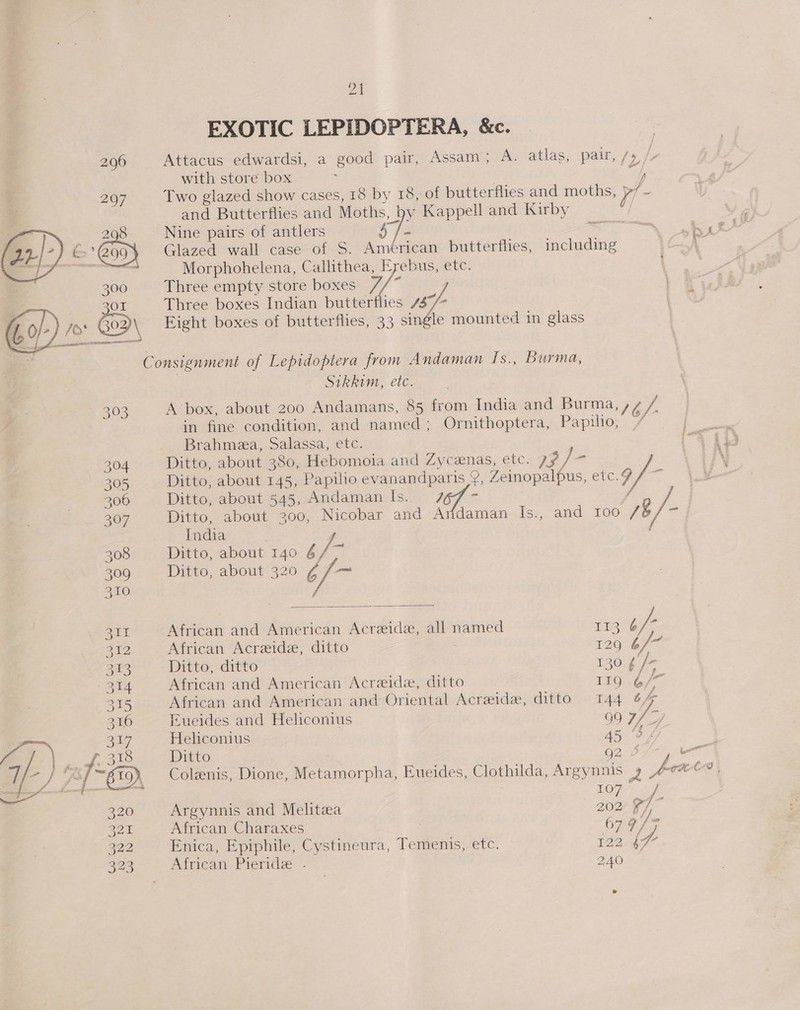 21
EXOTIC LEPIDOPTERA, &c.
296 Attacus edwardsi, a good pair, Assam; A. atlas, pair,
with store box
297 Two glazed show cases, 18 by 18, of butterflies and moths, 7/-
and Butterflies and Moths, by Kappell and Kirby
298 Nine pairs of antlers 5/-
299 Glazed wall case of S. American butterflies, including
Morphohelena, Callithea, Erebus, etc.
300 Three empty store boxes 7/-
301 Three boxes Indian butterflies 15/-
302 Eight boxes of butterflies, 33 single mounted in glass
Consignment of Lepidoptera from Andaman Is., Burma,
Sikkim, etc.
303 A box, about 200 Andamans, 85 from India and Burma, 16/-
in fine condition, and named; Ornithoptera, Papilio,
Brahmæa, Salassa, etc.
304 Ditto, about 380, Hebomoia and Zycænas, etc. 13/-
305 Ditto, about 145, Papilio evanandparis ♀, Zeinopalpus, etc. 9/-
306 Ditto, about 545, Andaman Is. 16/-
307 Ditto, about 300, Nicobar and Andaman Is., and 100 18/-
India
308 Ditto, about 140 6/-
309 Ditto, about 320 6/-
310
311 African and American Acræidæ, all named 113 6/-
312 African Acræidæ, ditto 129 6/-
313 Ditto, ditto 130 6/-
314 African and American Acræidæ, ditto 119 6/-
315 African and American and Oriental Acræidæ, ditto 144 6/-
316 Eueides and Heliconius 99 7/-
317 Heliconius 45
318 Ditto 92
319 Colænis, Dione, Metamorpha, Eueides, Clothilda, Argynnis 2 boxes
107
320 Argynnis and Melitæa 202
321 African Charaxes 67 9/-
322 Enica, Epiphile, Cystineura, Temenis, etc. 122
323 African Pieridæ . 240